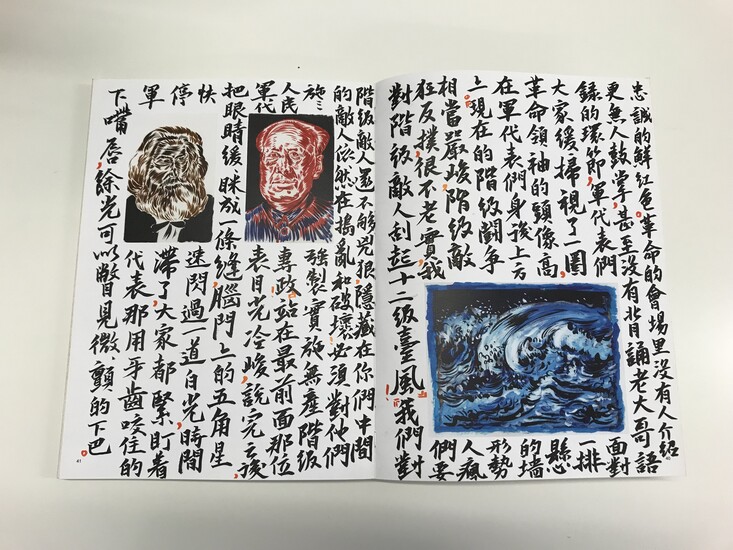 忠誠的鮮紅色。革命的會場里没有人介紹
更無人鼓掌,甚至没有背誦老大哥語
錄的環節,軍代表們面對
大家緩掃視了一圈一排
革命領袖的頭像高懸
在軍代表們身後上方的墙
上。現在的階級鬪爭形勢
相當嚴峻,階級敵人瘋
狂反撲,很不老實,我們要
對階級敵人刮起十二級臺風!我們對
階級敵人還不够兇狠,隱藏在你們中間
的敵人依然在搗亂和破壞,必須對他們
施强製實施無産階級
人民專政!站在最前面那位
軍代表目光冷峻,説完之後,
把眼睛緩眯成一條縫,腦門上的五角星
快速閃過一道白光,時間
停滯了,大家都緊盯着
軍代表那用牙齒咬住的
下嘴唇,餘光可以瞥見微顫的下巴。
41